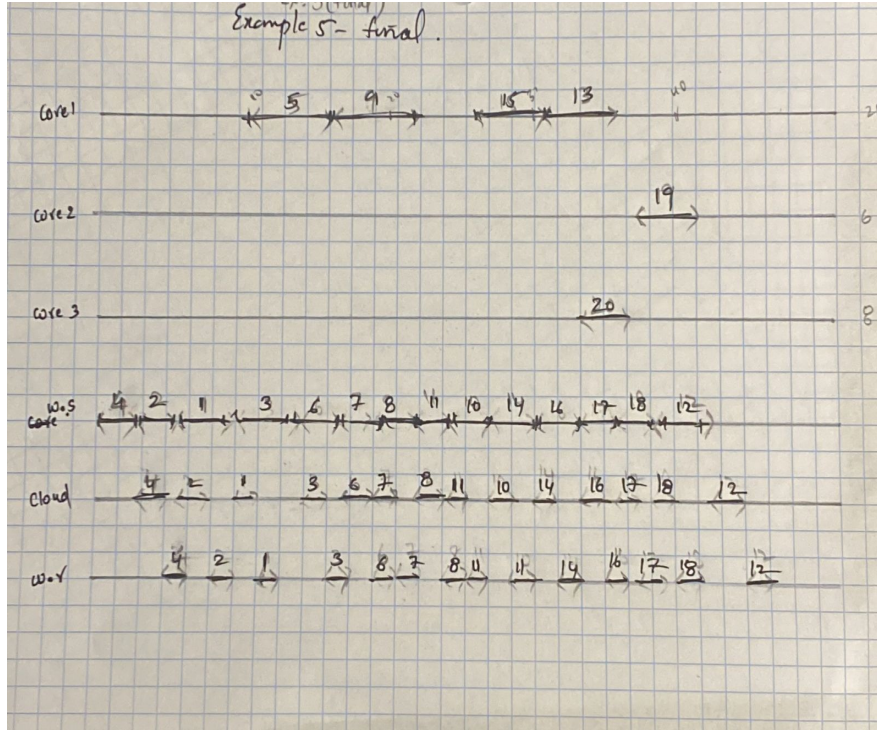 Example 5 - final.
Core1 5 9 20 15 13 40 2
Core2 19 6
Core 3 20 8
w.s 4 2 1 3 6 7 8 11 10 14 16 17 18 12
Core
Cloud 4 2 1 3 6 7 8 11 10 14 16 17 18 12
w.r 4 2 1 3 8 7 8 11 11 14 16 17 18 12